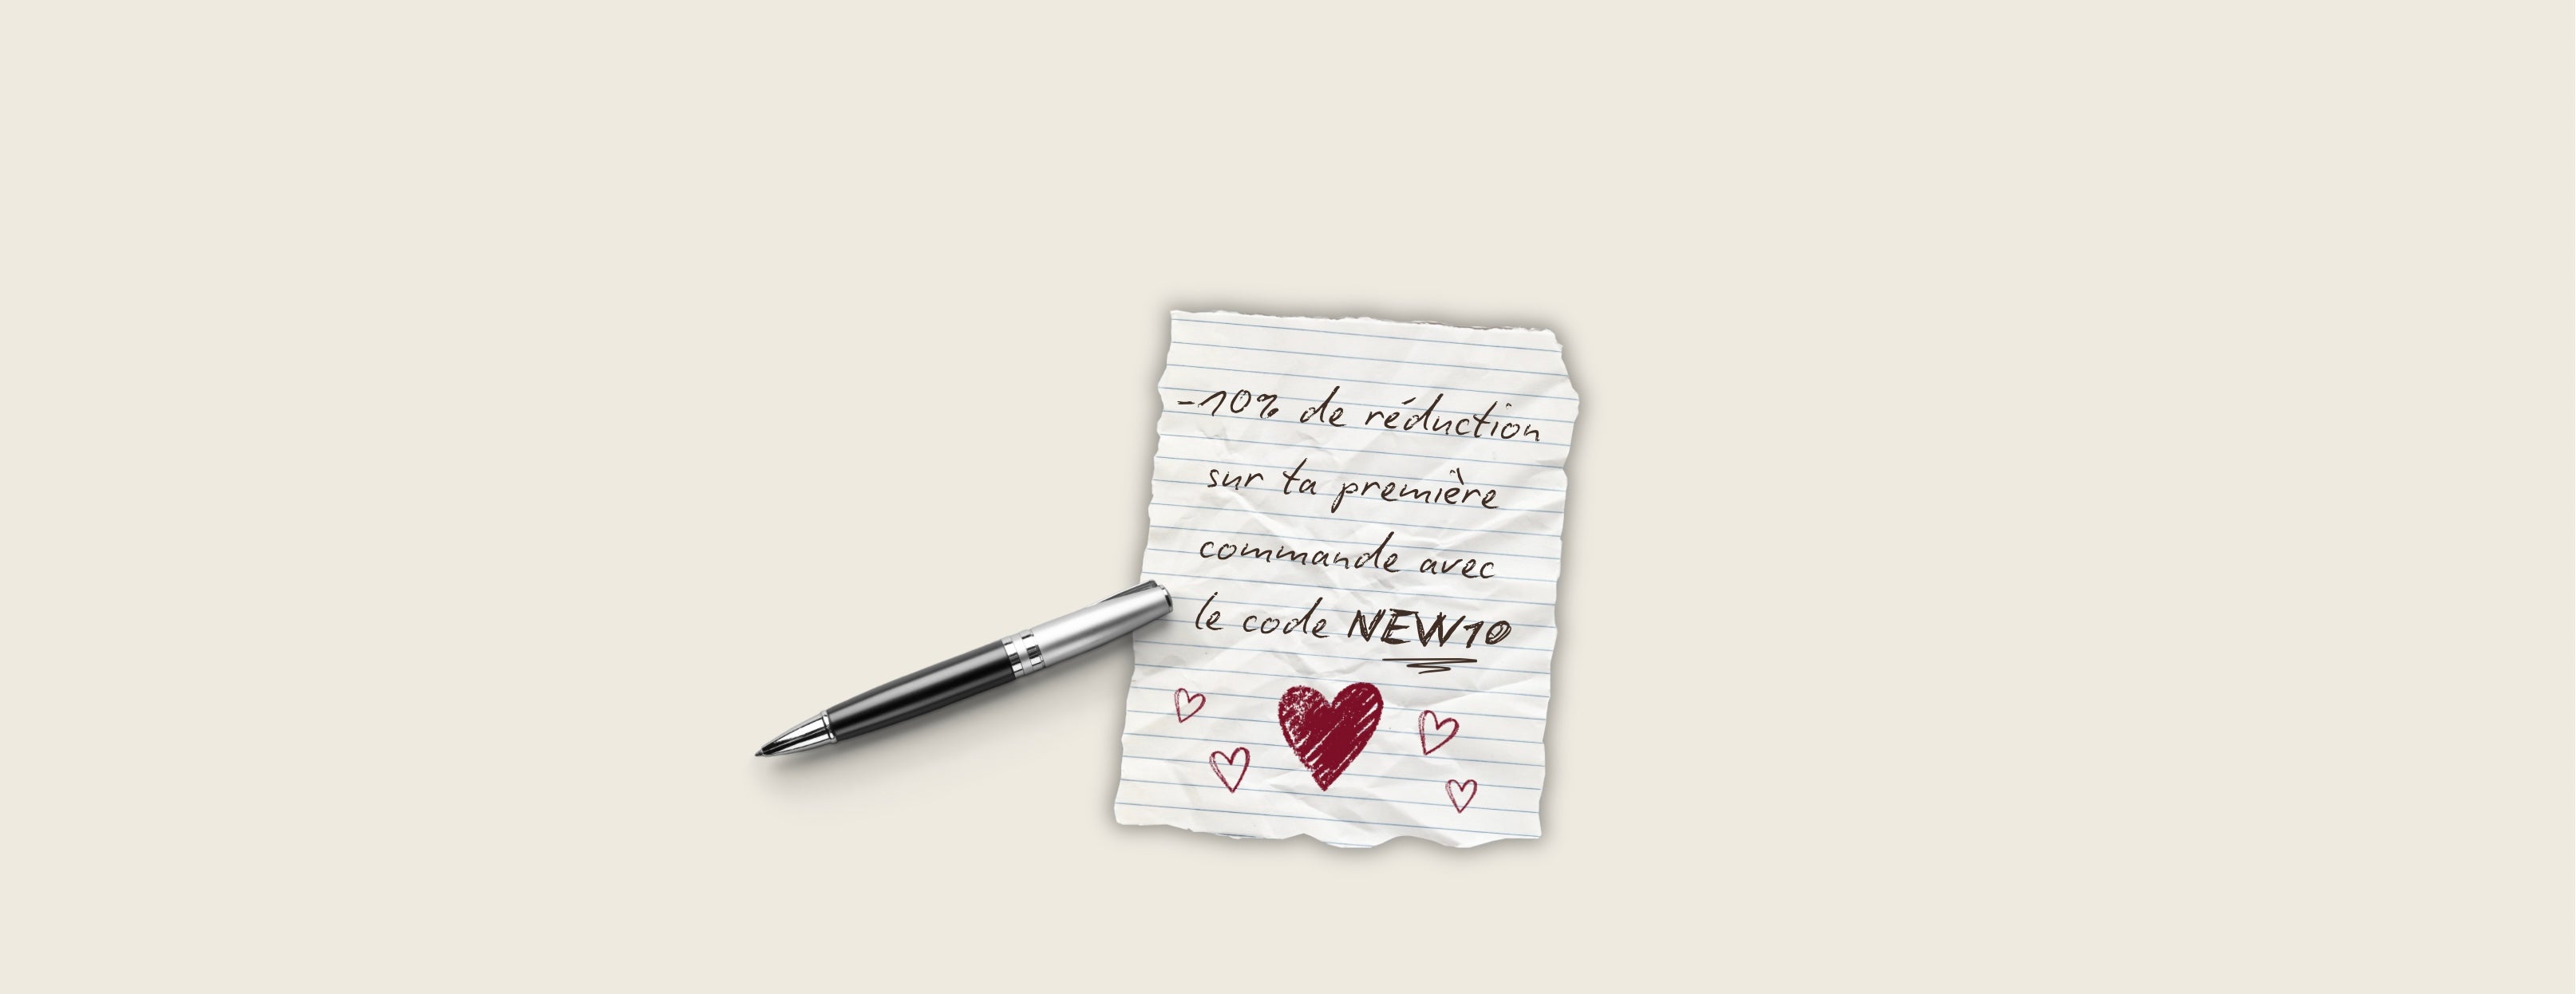 -10% de réduction
sur ta première
commande avec
le code NEW10